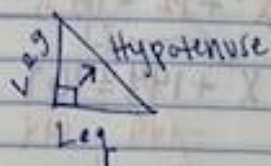 Leg
Hypotenuse
Leg